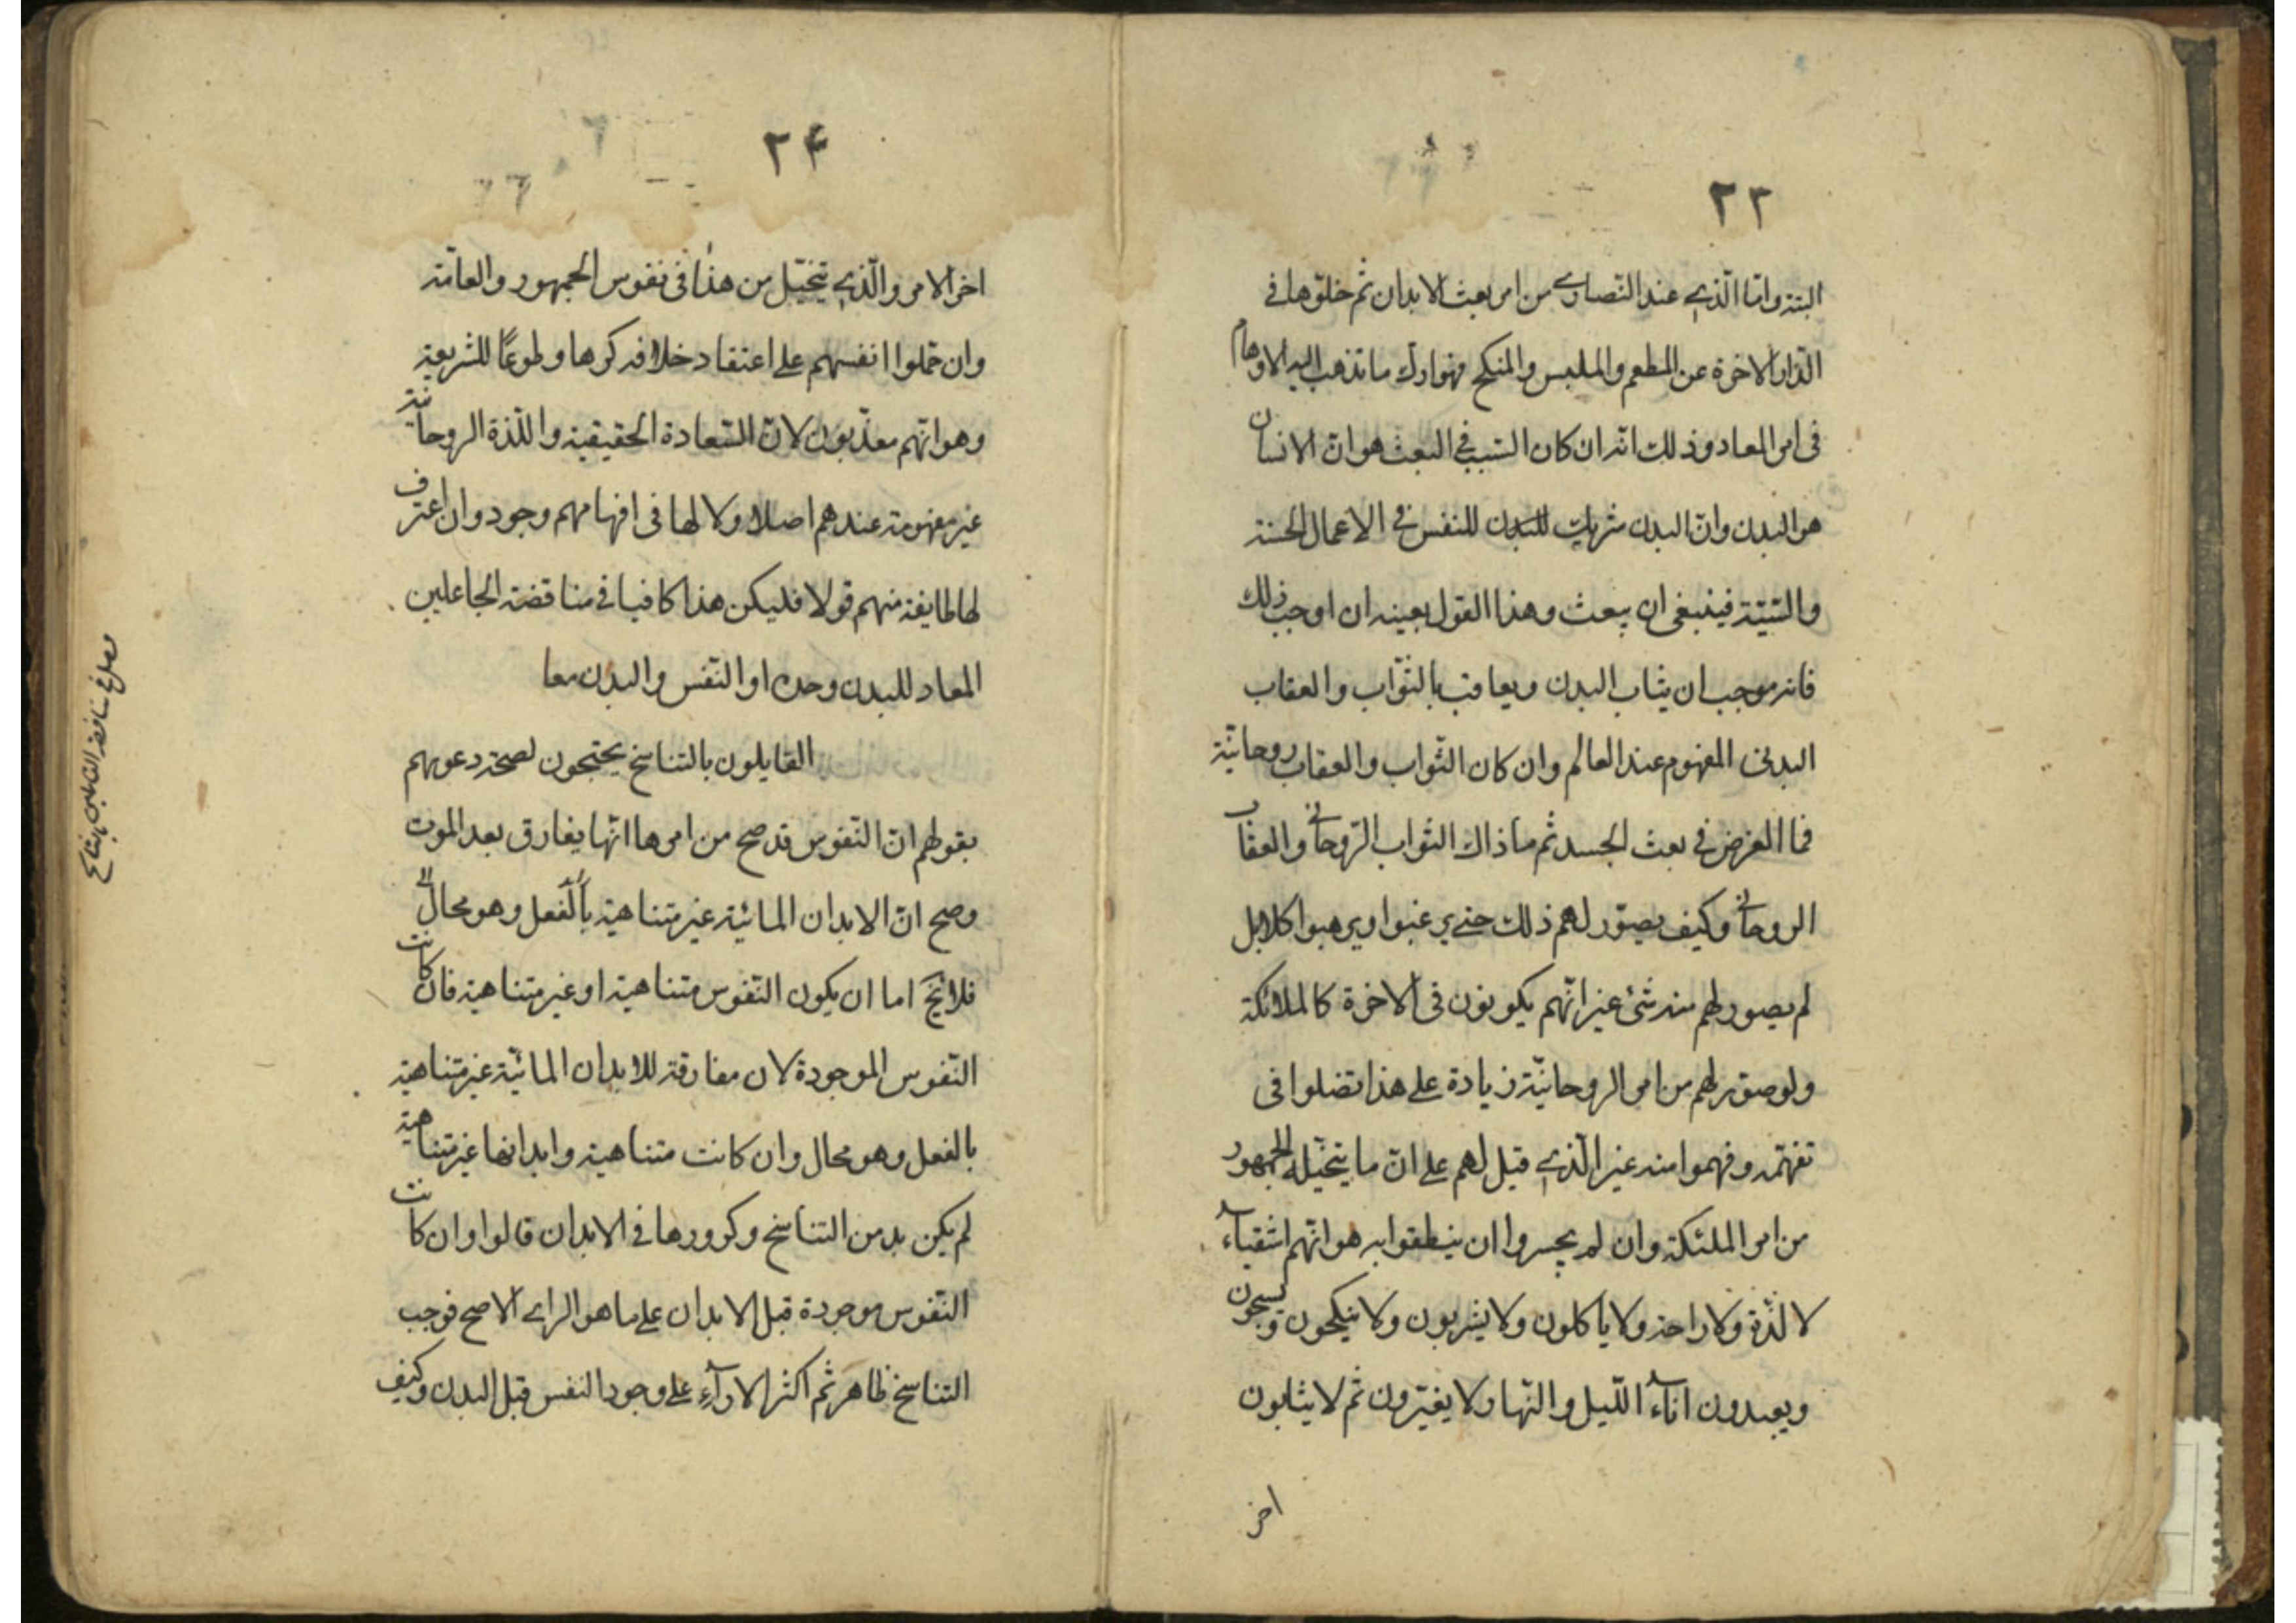 ٢٣
البتة واما الذي عند النصارى من امر بعث الابدان ثم خلوها في
الدار الاخرة عن المطعم والملبس والمنكح فهو ارك ما تذهب اليه الاوهام
في امر المعاد وذلك انه ان كان السبب في البعث هو ان الانسان
هو البدن وان البدن شريك للبدن للنفس في الاعمال الحسنة
والسيئة فينبغي ان يبعث وهذا القول بعينه ان اوجب ذلك
فانه موجب ان يثاب البدن ويعاقب بالثواب والعقاب
البدني المفهوم عند العالم وان كان الثواب والعقاب روحانية
فما الغرض في بعث الجسد ثم ماذاك الثواب الروحاني والعقاب
الروحاني وكيف يصور لهم ذلك حتي يرغبوا ويرهبوا كلا بل
لم يصور لهم منه شئ غير انهم يكونون في الاخرة كالملائكة
ولو صور لهم من امر الروحانية زيادة على هذا تضلوا في
تفهمه وفهموا منه غير الذي قيل لهم على ان ما يتخيله الجمهور
من امر الملئكة وان لم يجسروا ان ينطقوا به هو انهم اشقياء
لا لذة ولا راحة ولا ياكلون ولا يشربون ولا ينكحون ويسبحون
ويعبدون اناء الليل والنهار ولا يفترون ثم لا يثابون
اخر
٢۴
اخر الامر والذي تخيل من هذا في نفوس الجمهور والعامة
وان حملوا انفسهم على اعتقاد خلافه كرها وطوعا للشريعة
وهو انهم معذبون لان السعادة الحقيقية واللذة الروحانية
غير مفهومة عندهم اصلا ولا لها في افهامهم وجود وان اعترف
لها طايفة منهم قولا فليكن هذا كافيا في مناقضة الجاعلين
المعاد للبدن وحده او النفس والبدن معا
القايلون بالتناسخ يحتجون لصحة دعويهم
بقولهم ان النفوس قد صح من امرها انها يفارق بعد الموت
وصح ان الابدان المائية غير متناهية بالفعل وهو محال
فلا يخ اما ان يكون النفوس متناهية او غير متناهية فان كانت
النفوس الموجودة لان مفارقة للابدان المائية غير متناهية
بالفعل وهو محال وان كانت متناهية وابدانها غير متناهية
لم يكن بد من التناسخ وكرورها في الابدان قالوا وان كانت
النفوس موجودة قبل الابدان على ما هو الراى الاصح فوجب
التناسخ ظاهر ثم اكثر الاراء على وجود النفس قبل البدن وكيف